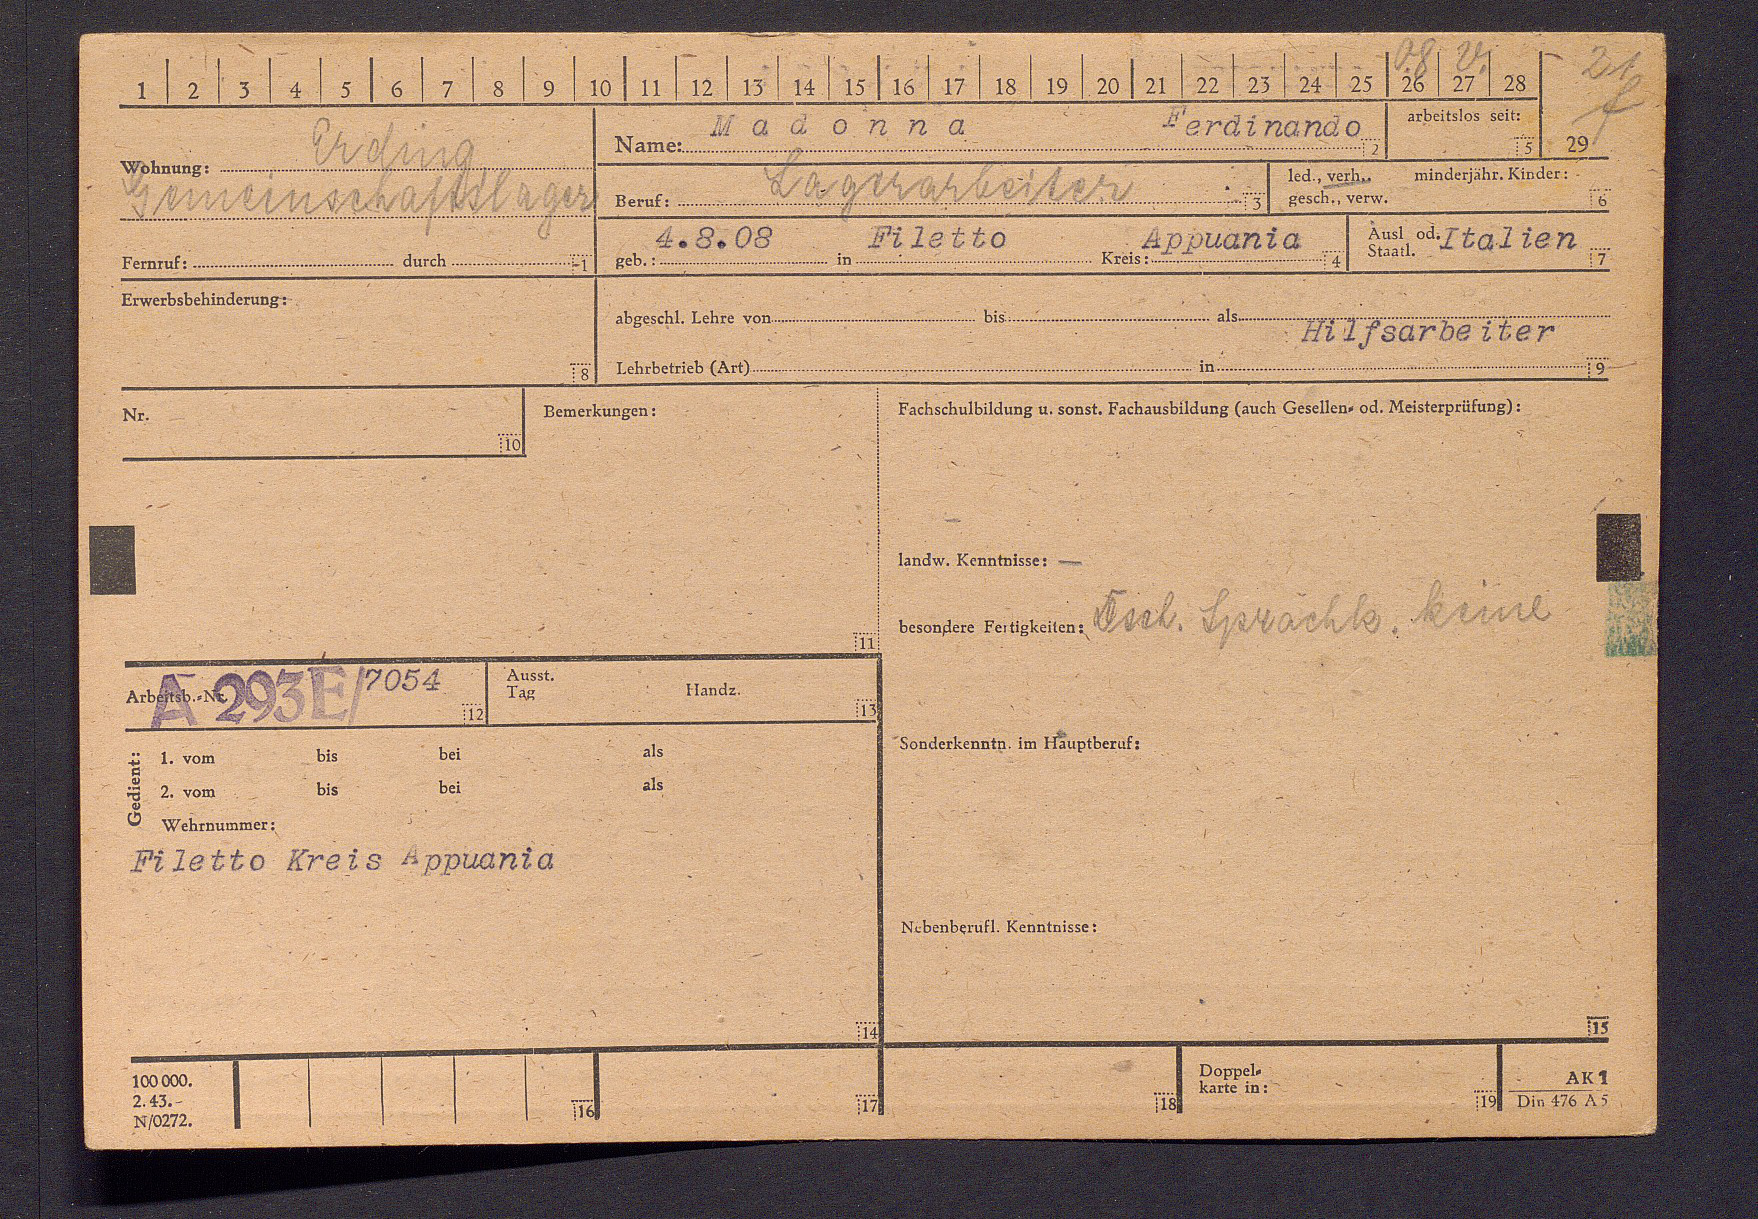 08 V.
1 2 3 4 5 6 7 8 9 10 11 12 13 14 15 16 17 18 19 20 21 22 23 24 25 26 27 28
Wohnung: Erding
Gemeinschaftslager
Fernruf: durch 1
Name: Madonna Ferdinando 2
arbeitslos seit: 5
29
Beruf: Lagerarbeiter 3
led., verh., minderjähr. Kinder: -
gesch., verw. 6
geb.: 4.8.08 in Filetto Kreis: Appuania 4
Ausl od. Italien
Staatl. 7
Erwerbsbehinderung:
8
abgeschl. Lehre von bis als
Hilfsarbeiter
Lehrbetrieb (Art) in 9
Nr.
10
Bemerkungen:
11
Fachschulbildung u. sonst. Fachausbildung (auch Gesellen- od. Meisterprüfung):
landw. Kenntnisse: —
besondere Fertigkeiten: Dtsch. Sprachk. keine
Arbeitsb.-Nr. A 293E/7054 12
Ausst.
Tag Handz. 13
Gedient:
1. vom bis bei als
2. vom bis bei als
Wehrnummer:
Filetto Kreis Appuania
14
Sonderkenntn. im Hauptberuf:
Nebenberufl. Kenntnisse:
15
100 000.
2. 43.-
N/0272.
16
17
18
Doppel-
karte in: 19
AK 1
Din 476 A 5